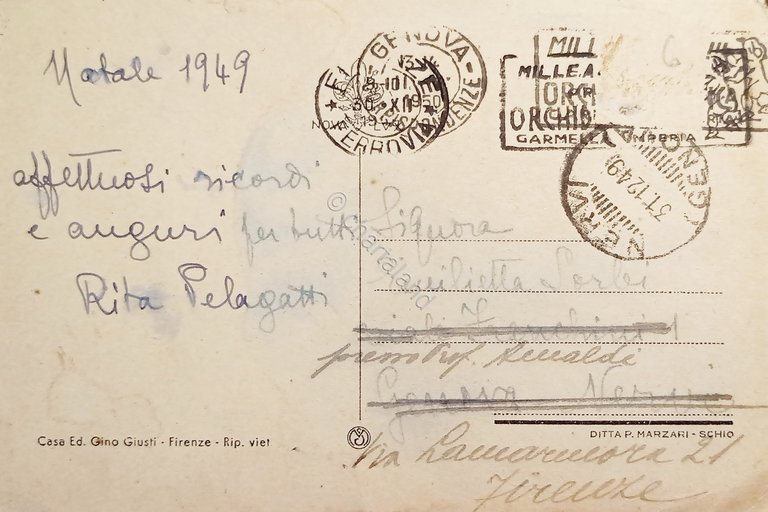 Natale 1949
affettuosi ricordi
e auguri per tutti
Rita Pelagatti
Casa Ed. Gino Giusti - Firenze - Rip. viet
GENOVA
FERROVIA
30. XII
1950
MILL
MILLE A
ORCH
ORCHID
GARMELLA IMPERIA
NERVI
GENOVA
31.12.49
Signora
Sorbi
presso Prof. Rinaldi
Genova Nervi
DITTA P. MARZARI - SCHIO
Via Lamarmora 21
Firenze